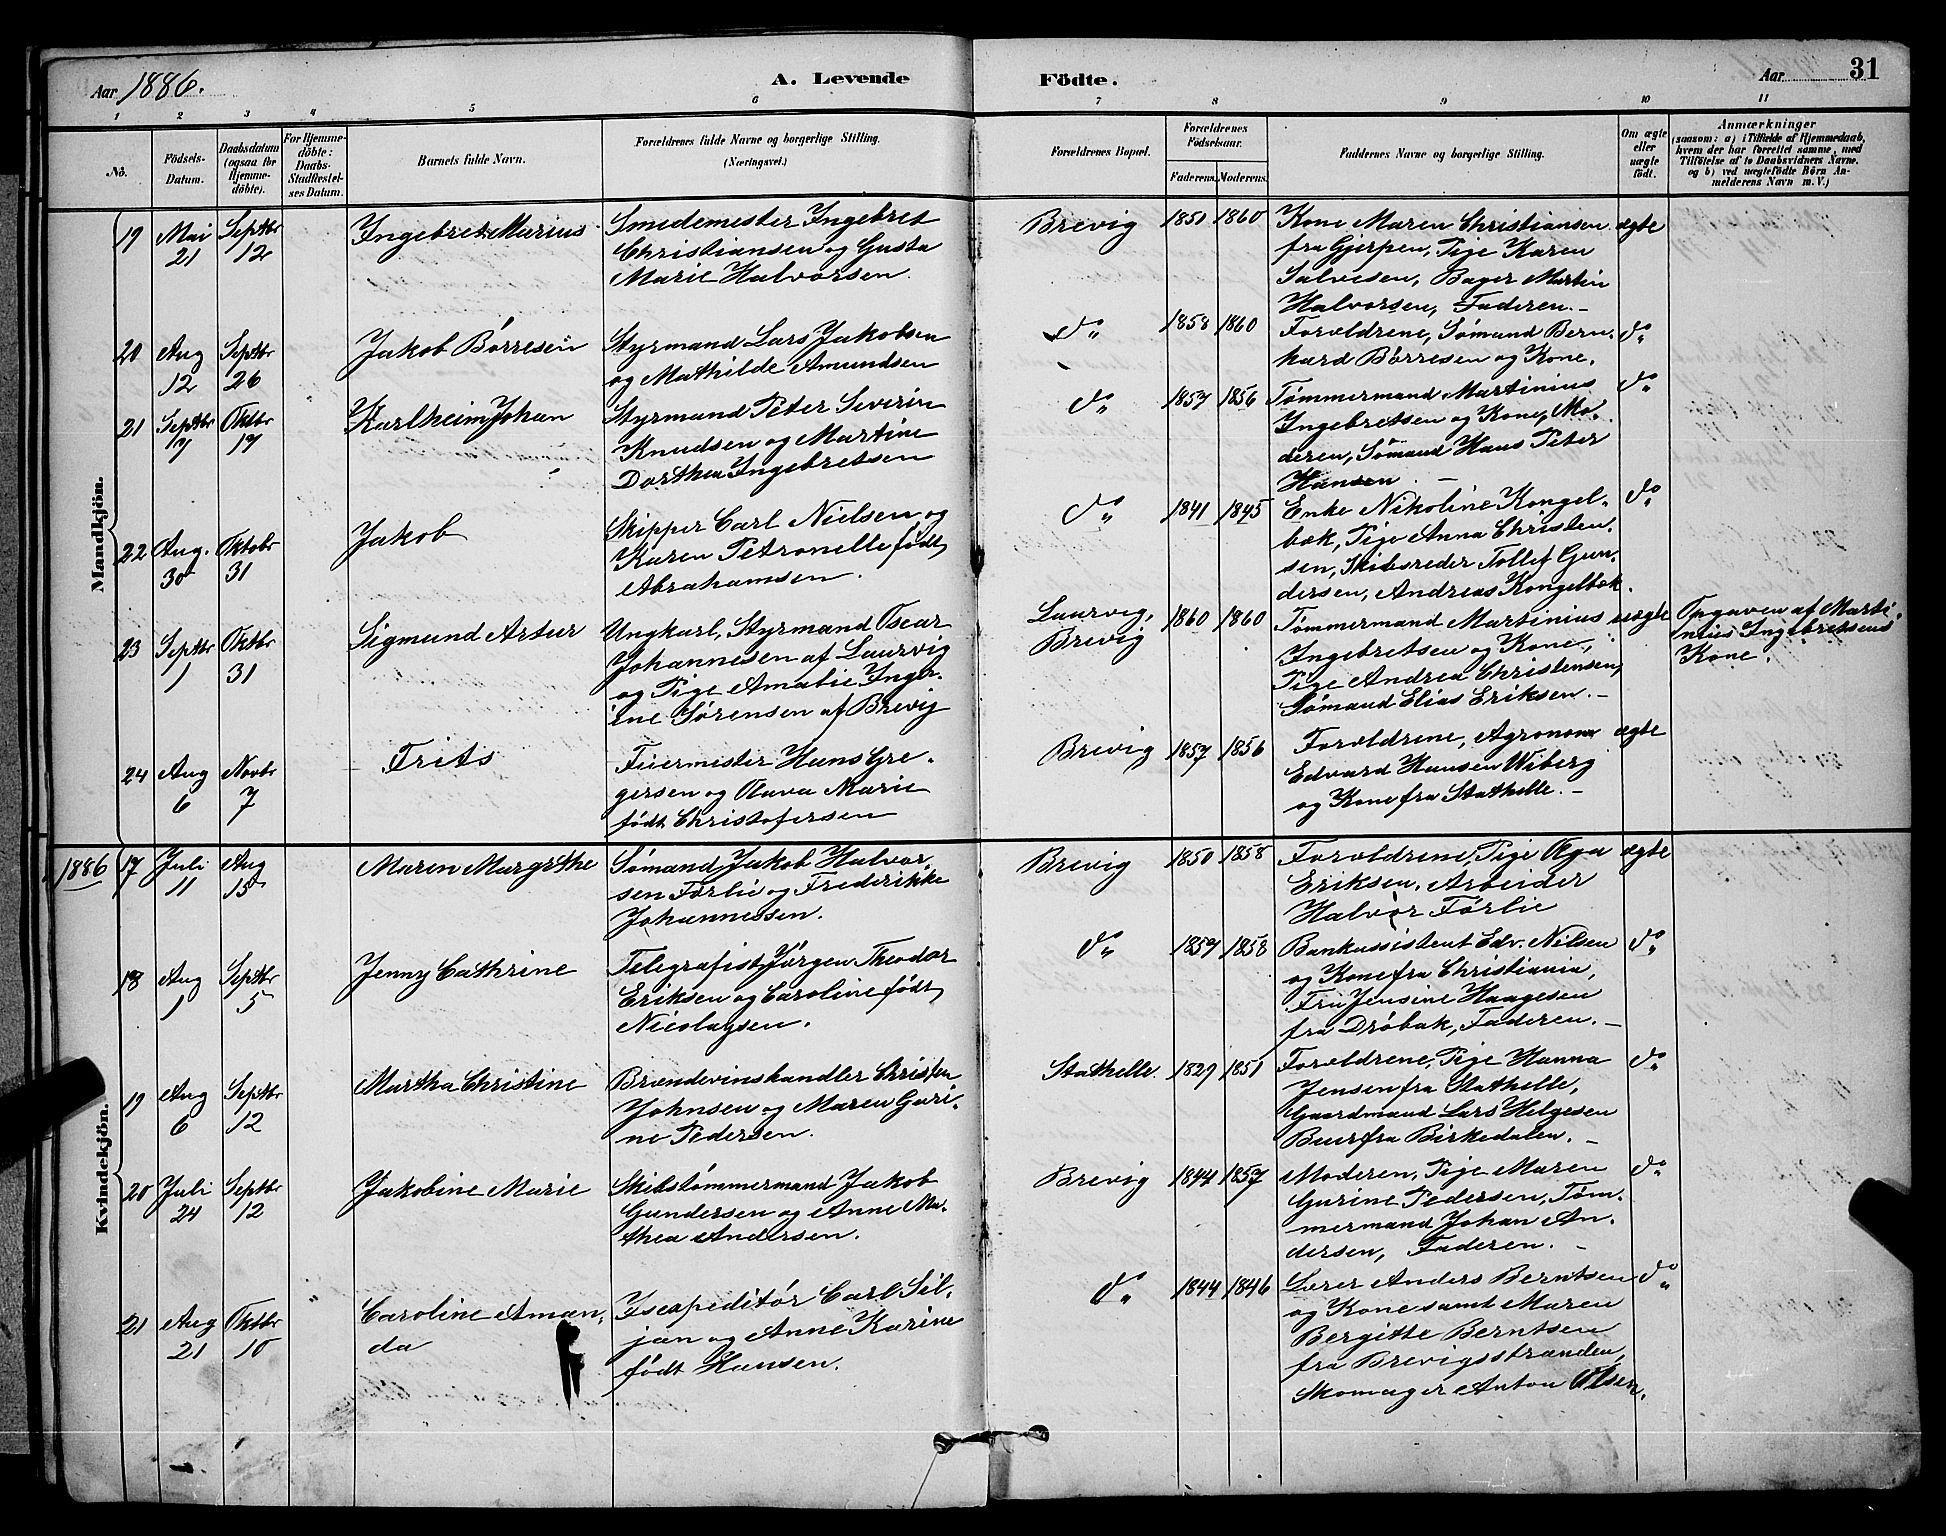 Aar 1886.
A. Levende
Födte.
Aar
31
1 2 3 4 5 6 7 8 9 10 11
No.
Födsels-
Datum.
Daabsdatum
(ogsaa for
Hjemme-
döbte).
For Hjemme-
döbte:
Daabs-
Stadfæstel-
ses Datum.
Barnets fulde Navn.
Forældrenes fulde Navne og borgerlige Stilling.
(Næringsvei.)
Forældrenes Bopæl.
Forældrenes
Födselsaar.
Faderens. Moderens.
Faddernes Navne og borgerlige Stilling.
Om ægte
eller
uægte
født.
Anmærkninger
(saasom: a) i Tilfælde af Hjemmedaab,
hvem der har forrettet samme, med
Tilföielse af to Daabsvidners Navne.
og b) ved uægtefödte Börn An-
melderens Navn m. V.)
Mandkjön.
19 Mai 21 Septbr 12
Ingebret Marius
Smedemester Ingebret
Christiansen og Gusta
Marie Halvorsen
Brevig 1851 1860
Kone Maren Christiansen
fra Gjerpen, Pige Karen
Salvesen, Bager Martin
Halvorsen, Faderen.-
ægte
20 Aug 12 Septbr 26
Jakob Börresen
Styrmand Lars Jakobsen
og Mathilde Amundsen
do 1858 1860
Forældrene, Sømand Bern-
hard Börresen og Kone.
do
21 Septbr 17 Oktbr 17
Karlheim Johan
Styrmand Peter Severin
Knudsen og Martine
Dorthea Ingebretsen
do 1857 1856
Tømmermand Martinius
Ingebretsen og Kone, Mo-
deren, Sømand Hans Peter
Hansen.-
do
22 Aug. 30 Oktobr 31
Jakob
Skipper Carl Nielsen og
Karen Petronelle født
Abrahamsen.
do 1841 1845
Enke Nikoline Kongel-
bæk, Pige Anna Christen-
sen, Skibsreder Tollef Gun-
dersen, Andreas Kongelbæk.
do
23 Septbr 1 Oktbr 31
Sigmund Artur
Ungkarl, Styrmand Oscar
Johannesen af Laurvig
og Pige Amalie Inger-
ine Sørensen af Brevig
Laurvig,
Brevig
1860 1860
Tømmermand Martinius
Ingebretsen og Kone,
Pige Andrea Christensen,
Sømand Elias Eriksen.-
uægte
Opgaven af Marti-
nius Ingebretsens
Kone.
24 Aug 6 Novbr 7
Frits
Feiermester Hans Gre-
gersen og Olava Marie
født Christofersen
Brevig 1857 1856
Forældrene, Agronom
Edvard Hansen Wiberg
og Kone fra Stathelle.-
ægte
Kvindekjön.
1886
17 Juli 11 Aug 15
Maren Margrethe
Sømand Jakob Halvor-
sen Førlie og Frederikke
Johannessen.
Brevig 1850 1858
Forældrene, Pige Aga
Eriksen, Arbeider
Halvor Førlie
ægte
18 Aug 1 Septbr 5
Jenny Cathrine
Telegrafist Jørgen Theodor
Eriksen og Caroline født
Nicolaysen.
do 1857 1858
Bankassistent Edv. Nilsen
og Kone fra Christiania,
Fru Jensine Haagesen
fra Drøbak, Faderen.-
do
19 Aug 6 Septbr 12
Martha Christine
Brændevinshandler Christen
Johnsen og Maren Guri-
ne Pedersen.
Stathelle 1829 1851
Forældrene, Pige Hanna
Jensen fra Stathelle,
Gaardmand Lars Helgesen
Buer fra Birkedalen.-
do
20 Juli 24 Septbr 12
Jakobine Marie
Skibstømmermand Jakob
Gundersen og Anne Ma-
thea Andersen.
Brevig 1844 1857
Moderen, Pige Maren
Gurine Pedersen, Tøm-
mermand Johan An-
dersen, Faderen.-
do
21 Aug 21 Oktbr 10
Caroline Aman-
da
Isexpeditør Carl Sil-
jan og Anne Karine
født Hansen.
do 1844 1846
Lærer Anders Berntsen
og Kone samt Maren
Bergitte Berntsen
fra Brevigsstranden,
Skomager Anton Olsen.
do